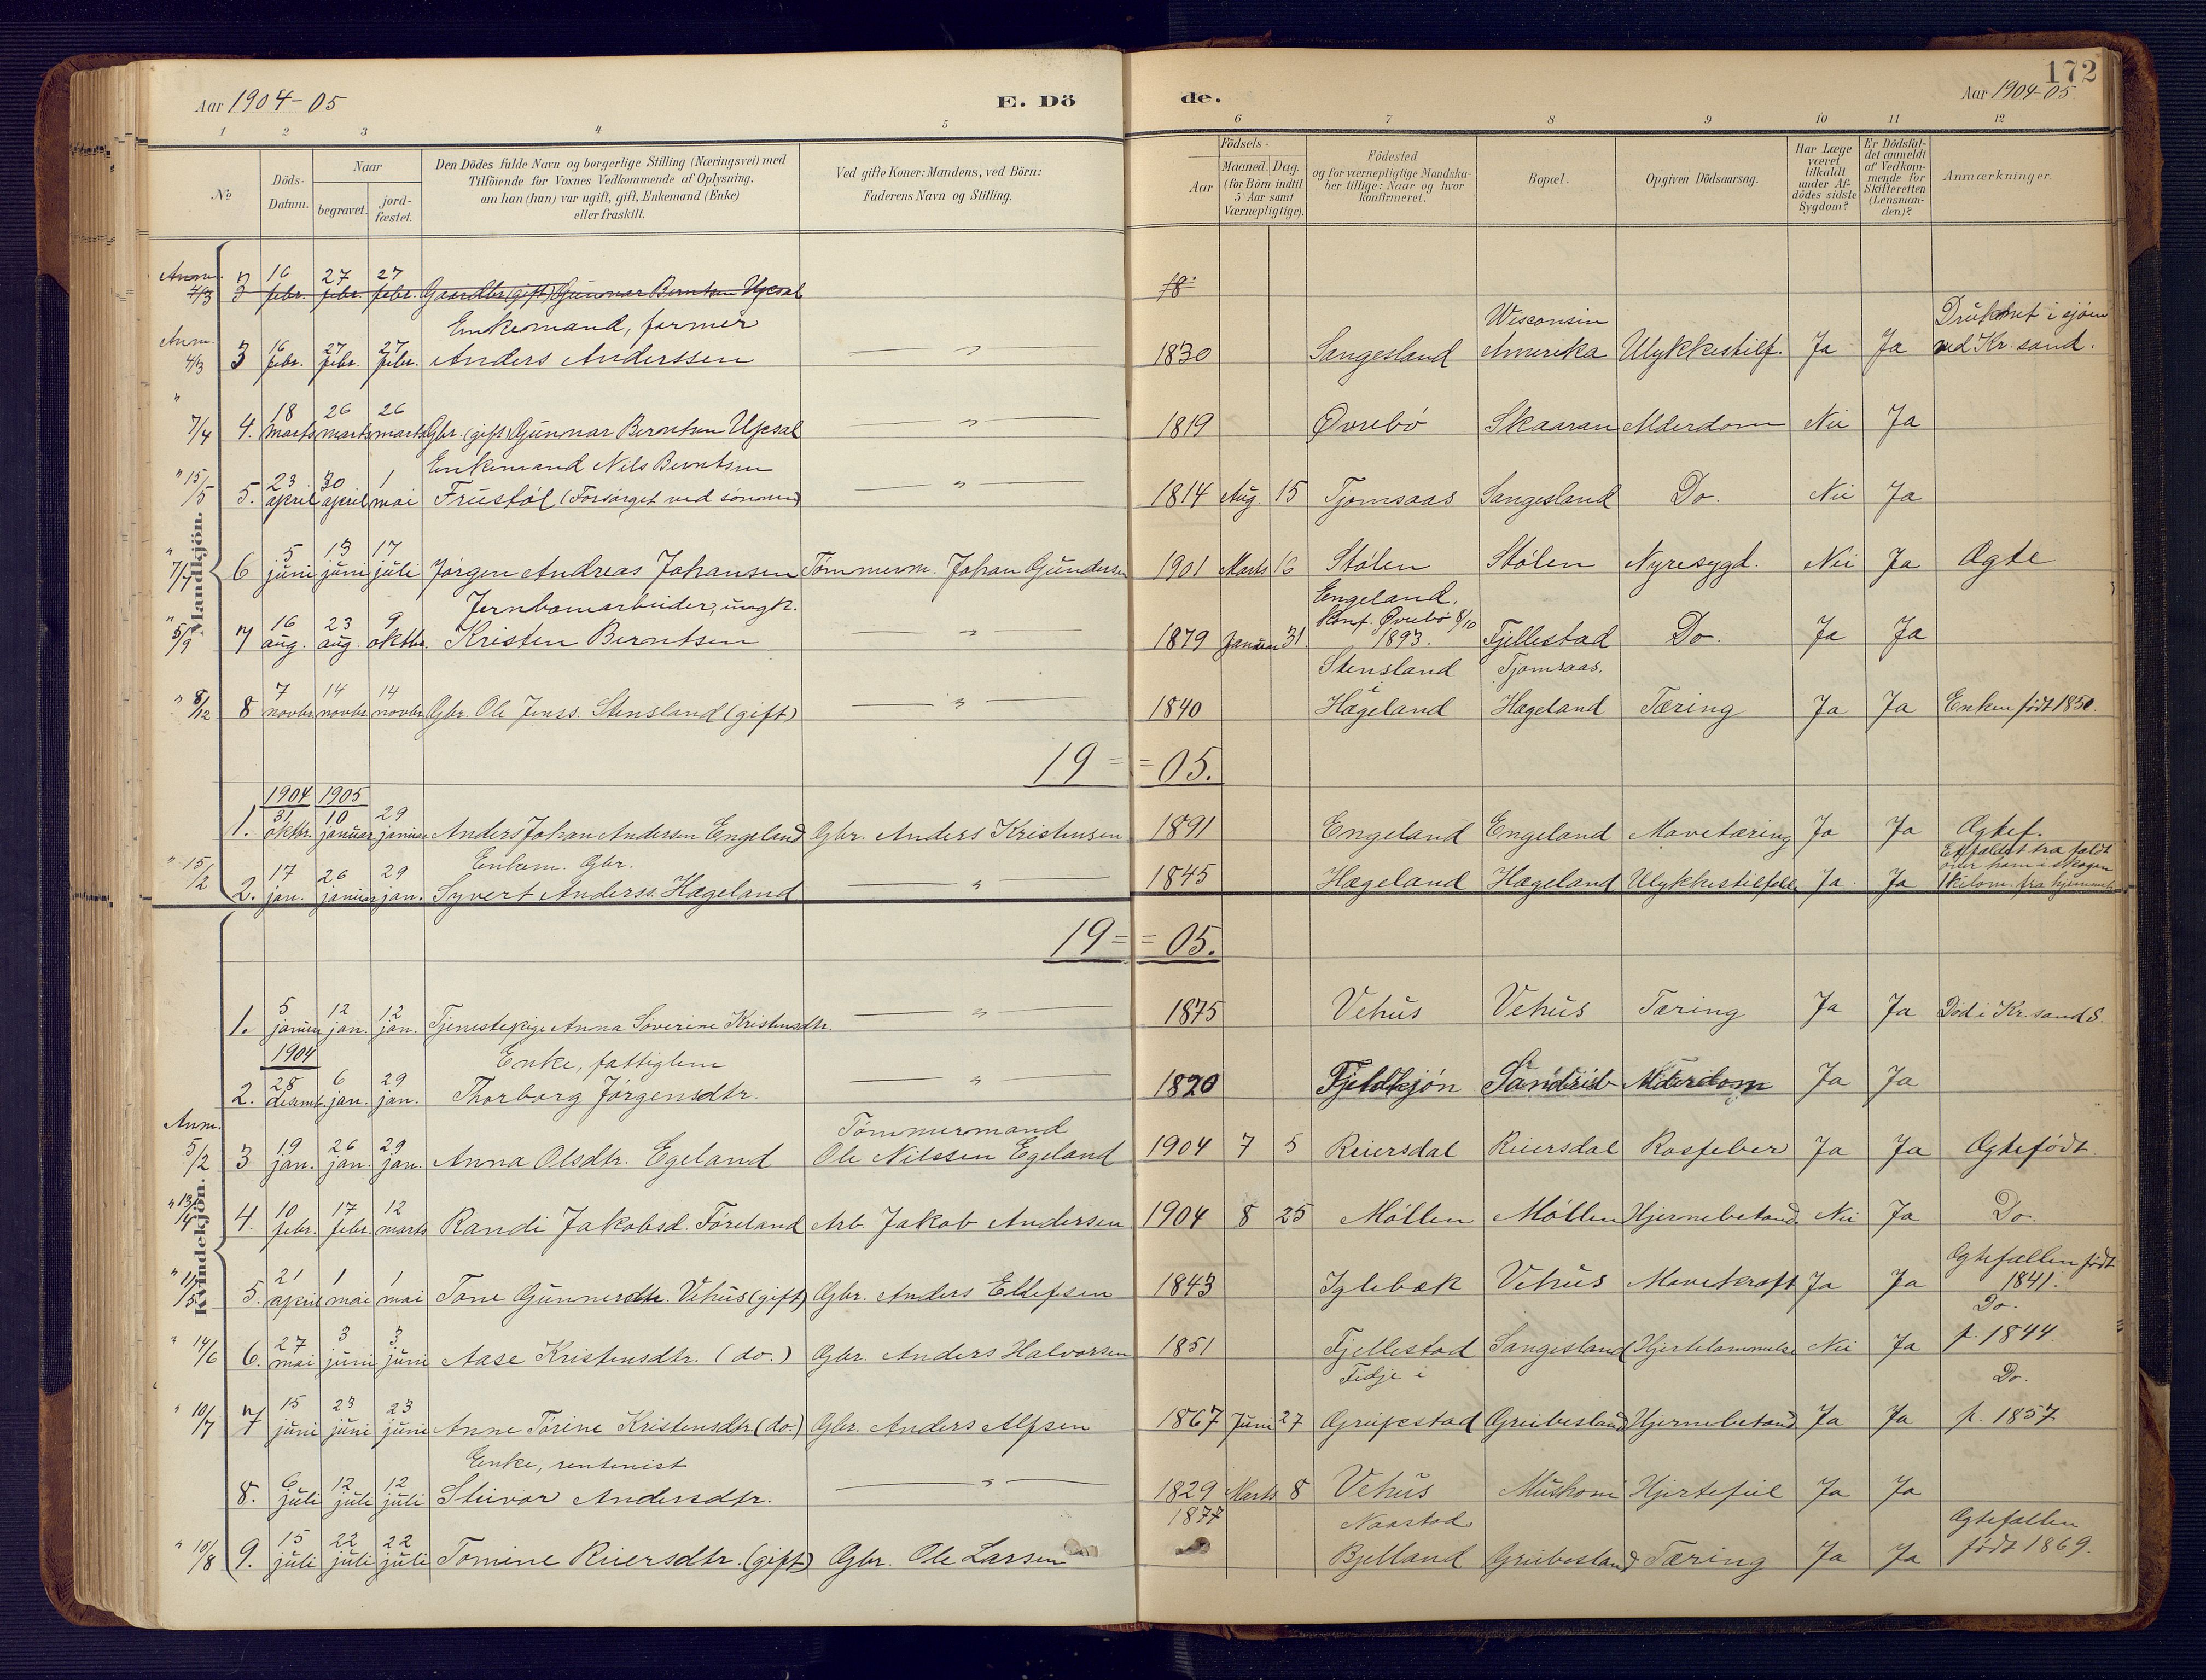 172
Aar 1904-05
E. Dö
de.
Aar 1904-05
1 2 3 4 5 6 7 8 9 10 11 12
No
Döds-
Datum.
Naar
begravet.
jord-
fæstet.
Den Dödes fulde Navn og borgerlige Stilling (Næringsvei) med
Tilföiende for Voxnes Vedkommende af Oplysning,
om han (hun) var ugift, gift, Enkemand (Enke)
eller fraskilt.
Ved gifte Koner: Mandens, ved Börn:
Faderens Navn og Stilling.
Födsels-
Aar
Maaned. Dag.
(for Börn indtil
5 Aar samt
Værnepligtige).
Födested
og for værnepligtige Mandska-
ber tillige: Naar og hvor
konfirmeret.
Bopæl.
Opgiven Dödsaarsag.
Har Læge
været
tilkaldt
under Af-
dödes sidste
Sygdom?
Er Dödsfal-
det anmeldt
af Vedkom-
mende for
Skifteretten
(Lensman-
den)?
Anmærkninger.
Mandkjön.
Anm. 16 27 27
4/3 3 febr. febr. febr. Gaardbr. (gift) Gunnar Berntsen Upsal 18
Enkemand, farmer Wisconsin Druknet i sjøen
Anm. 4/3 3 16 febr. 27 febr. 27 febr. Anders Anderssen — " — 1830 Sangesland Amerika Ulykkestilf. Ja Ja ved Kr. sand.
" 7/4 4. 18 marts 26 marts 26 marts Gbr. (gift) Gunnar Berntsen Upsal — " — 1819 Øvrebø Skaaran Alderdom Nei Ja
Enkemand Nils Berntsen
" 15/5 5. 23 april 30 april 1 mai Frustøl (Forsørget ved sønnen) — " — 1814 Aug. 15 Tjomsaas Sangesland Do. Nei Ja
" 7/7 6 5 juni 13 juni 17 juli Jørgen Andreas Johansen Tømmerm. Johan Gundersen 1901 Marts 16 Stølen Stølen Nyresygd. Nei Ja Ægte
Jernbanearbeider, ungk. Engeland,
konf. Øvrebø 8/10
" 5/9 7 16 aug. 23 aug. 9 oktbr. Kristen Berntsen — " — 1879 Januar 31. 1893. Fjellestad Do. Ja Ja
Stensland Tjomsaas.
i
" 8/12 8 7 novbr. 14 novbr. 14 novbr. Gbr. Ole Jenss. Stensland (gift) — " — 1840 Hægeland Hægeland Tæring Ja Ja Enken født 1850.
19 = = 05.
1904 1905
1. 31 oktbr. 10 januar 29 januar Anders Johan Andersen Engeland Gbr. Anders Kristensen 1891 Engeland Engeland Mavetæring Ja Ja Ægtef.
Enkem. Gbr. træ faldt
under ham i skogen
" 15/2 2. 17 jan. 26 januar 29 jan. Syvert Anderss. Hægeland — " — 1845 Hægeland Hægeland Ulykkestilfelle Ja Ja 1 kilom. fra hjemmet
19 = = 05.
Kvindekjön.
1. 5 januar 12 jan. 12 jan. Tjenestepige Anna Severine Kristensdtr. — " — 1875 Vehus Vehus Tæring Ja Ja Død i Kr. sand S.
1904 Enke, fattiglem
2. 28 desemb. 6 jan. 29 jan. Thorborg Jørgensdtr. — " — 1820 Fjeldkjøn Alderdom Ja Ja
Anm. Tømmermand
5/2 3 19 jan. 26 jan. 29 jan. Anna Olsdtr. Egeland Ole Nilssen Egeland 1904 7 5 Reiersdal Reiersdal Rosfeber Ja Ja Ægtefødt.
4. 10 febr. 17 febr. 12 marts Randi Jakobsd. Føreland Arb. Jakob Andersen 1904 8 25 Møllen Møllen Hjernebetænd. Nei Ja Do.
Ægtefællen født
5. 21 april 1 mai 1 mai Tone Gunnersdtr. Vehus (gift) Gbr. Anders Ellefsen 1843 Iglebæk Vehus Mavekræft Ja Ja 1841.
Do.
" 14/6 6. 27 mai 3 juni 3 juni Aase Kristensdtr. (do.) Gbr. Anders Halvorsen 1851 Fjellestad Sangesland Hjertelammelse Nei Ja f. 1844
Fidje i Do.
" 10/7 7 15 juni 23 juni 23 juni Anne Tørine Kristensdtr. (do.) Gbr. Anders Alfsen 1867 Juni 27 Greipestad Greibesland Hjernebetænd. Ja Ja f. 1857
Enke, rentenist
8. 6 juli 12 juli 12 juli Steivor Andersdtr. — " — 1829 Marts 8 Vehus Mushom Hjertefeil Ja Ja
1877 Naastad Ægtefællen
" 10/8 9. 15 juli 22 juli 22 juli Tomine Reiersdtr. (gift) Gbr. Ole Larsen Bjelland Greibesland Tæring Ja Ja født 1869.